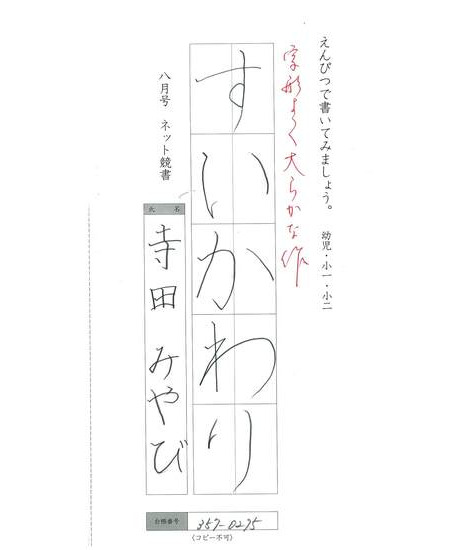 えんぴつで書いてみましょう。 幼児・小一・小二
字形よく大らかな作
すいかわり
八月号 ネット競書
氏 名
寺田 みやび
台帳番号 357-0275
(コピー不可)